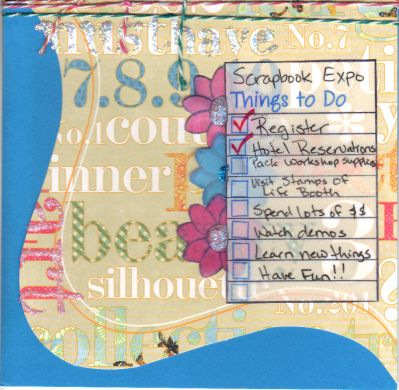 musthave
No.7
7.8.9
No.1
cou
inner
bea
silhouet
No.201
collection
Scrapbook Expo
Things to Do
Register
Hotel Reservations
Pack Workshop Supplies
Visit Stamps of
Life Booth
Spend lots of $$
Watch demos
Learn new things
Have Fun!!